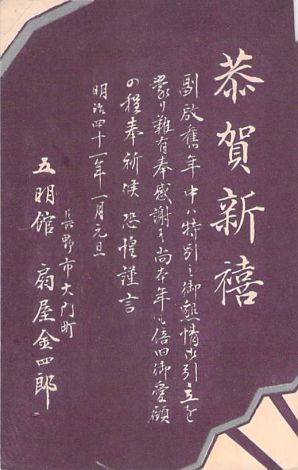 恭賀新禧
副啟舊年中ハ特別之御懇情御引立を
蒙り難有奉感謝候尚本年も倍旧御愛顧
の程奉祈候恐惶謹言
明治四十一年一月元旦
長野市大門町
五明館 扇屋金四郎